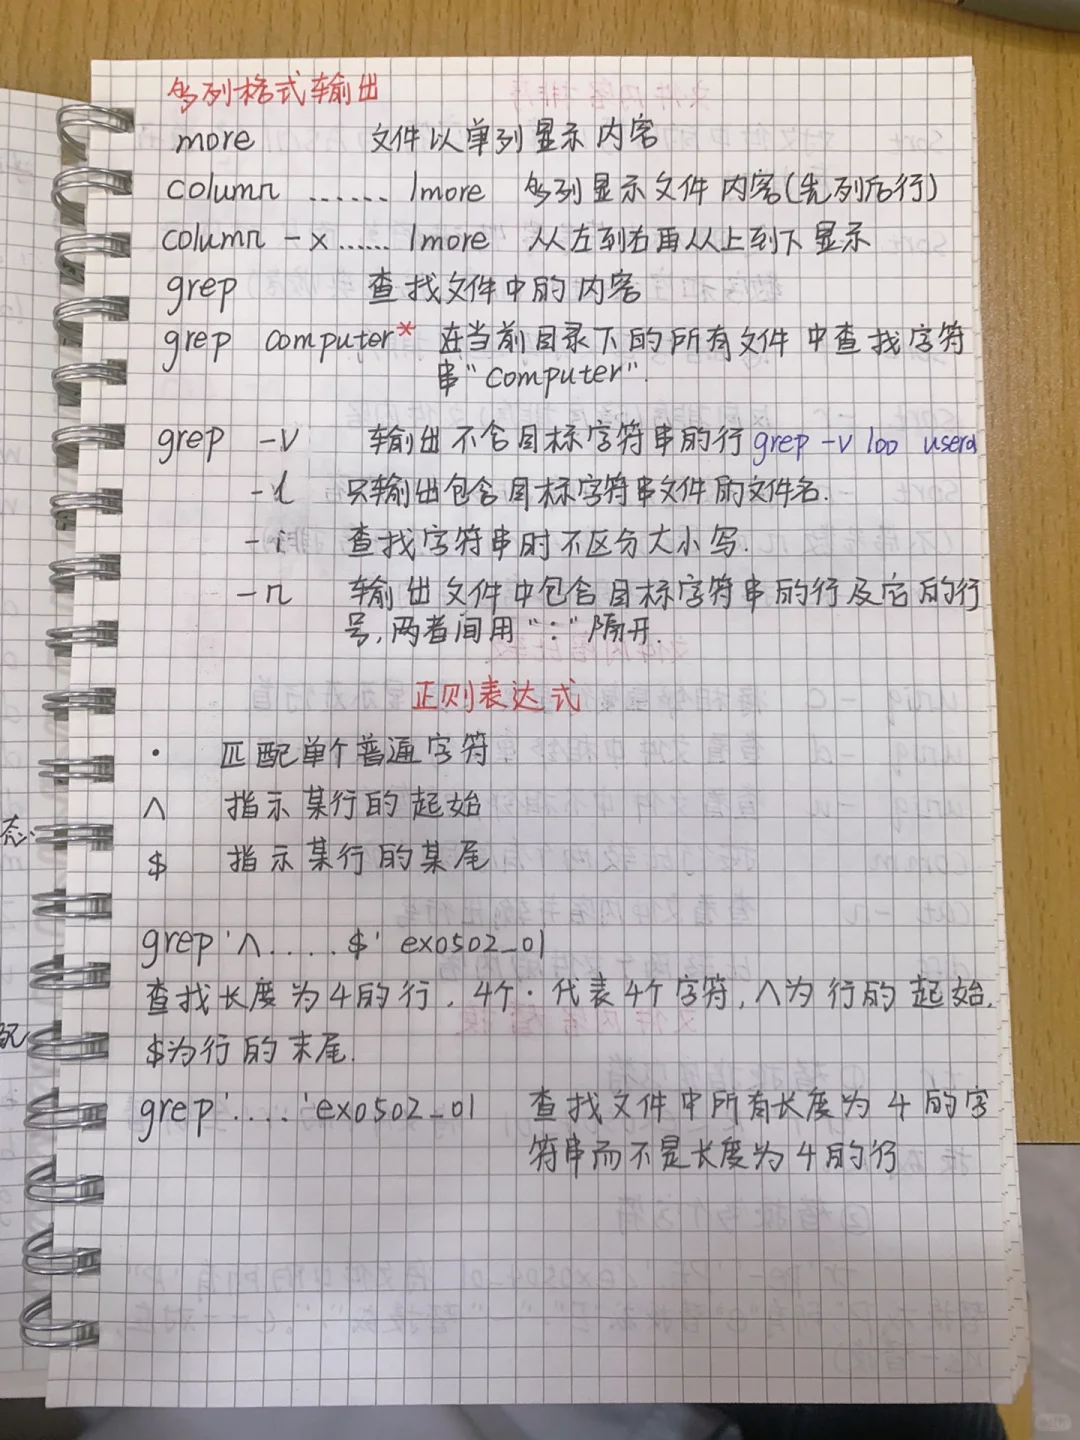 多列格式输出
more 文件以单列显示内容
column ...... |more 多列显示文件内容(先列后行)
column -x ...... |more 从左到右再从上到下显示
grep 查找文件中的内容
grep computer* 在当前目录下的所有文件中查找字符
串"computer".
grep -v 输出不含目标字符串的行 grep -v 100 usera
-l 只输出包含目标字符串文件的文件名.
-i 查找字符串时不区分大小写.
-n 输出文件中包含目标字符串的行及它的行
号,两者间用":"隔开.
正则表达式
· 匹配单个普通字符
^ 指示某行的起始
$ 指示某行的某尾
grep '^.....$' ex0502_01
查找长度为4的行. 4个·代表4个字符, ^为行的起始.
$为行的末尾.
grep '....' ex0502_01 查找文件中所有长度为4的字
符串而不是长度为4的行